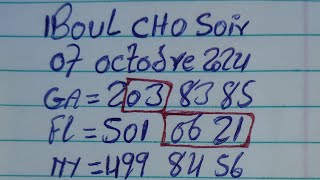 BOUL CHO SOIR
07 octobre 2024
GA = 203 83 85
FL = 501 06 21
NY = 499 84 56